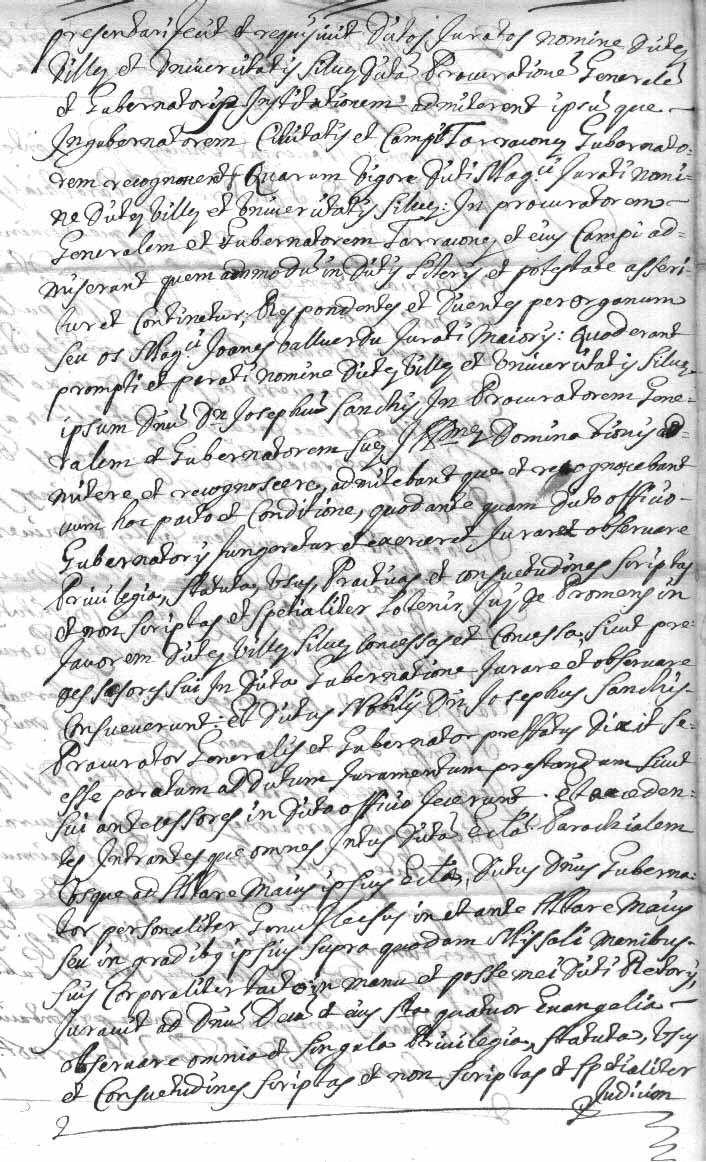 presentari fecit et requisivit dictos Juratos nomine dictę
Villę et Universitatis Silvę dictã Procurationẽ Generalẽ
et Gubernatoris Institutionem admiterent ipsũ que
In gubernatorem Civitatis et Campi Tarraconę Gubernato-
rem recognoxent Quarum vigore dicti Magci Jurati nomi-
ne dictę Villę et Universitatis Silvę: In procuratorem
Generalem et Gubernatorem Tarraconę et eius Campi ad-
miserant quem admodũ in dictis literis et potestate asseri-
tur et continetur, Respondentes et dicentes per organum
seu os Magci Joanes Vallverdu Jurati Maioris: Quod erant
prompti et parati nomine dictę Villę et Universitatis Silvę
ipsum Dnũ Dn Josephũ Sanchis In Procuratorem Gene-
ralem et Gubernatorem suę Illmę Dominationis ad-
mitere et recognoscere, admitebant que et recognoxebant
cum hoc pacto et Conditione, quod ante quam dicto officio
Gubernatoris fungeretur et exerceret Juraret observare
Privilegia, statuta, Usus, Practicas et consuetudines scriptas
et non scriptas et spetialiter lo tenir Juy de Promens in
favorem dictę Villę Silvę Concessas et Concessa, sicut prę-
dessesores sui In dicta Gubernatione Jurare et observare
Consueverunt: et dictus Nobilis Dn Josephus Sanchis
Procurator Generalis et Gubernator preffatus dixit se
esse paratum ad dictum Juramentum prestandum sicut
sui antecessores in dicto officio fecerunt. et acceden-
tes Intrantes que omnes Intus dictã Ecclã Parochialem
Usque ad Altare Maius ipsius Ecclã, dictus Dnus Guberna-
tor personaliter Genu flaexus in et ante Altare Maius
seu in gradibq ipsius supra quodam Missali manibus
suis Corporaliter tacto in manu et posse mei dicti Rectoris,
Juravit ad Dnũ Deũ et eius sta quatuor Evangelia
observare omnia et singula Privilegia, statuta, Usus
et Consuetudines scriptas et non scriptas et spetialiter
Judicium